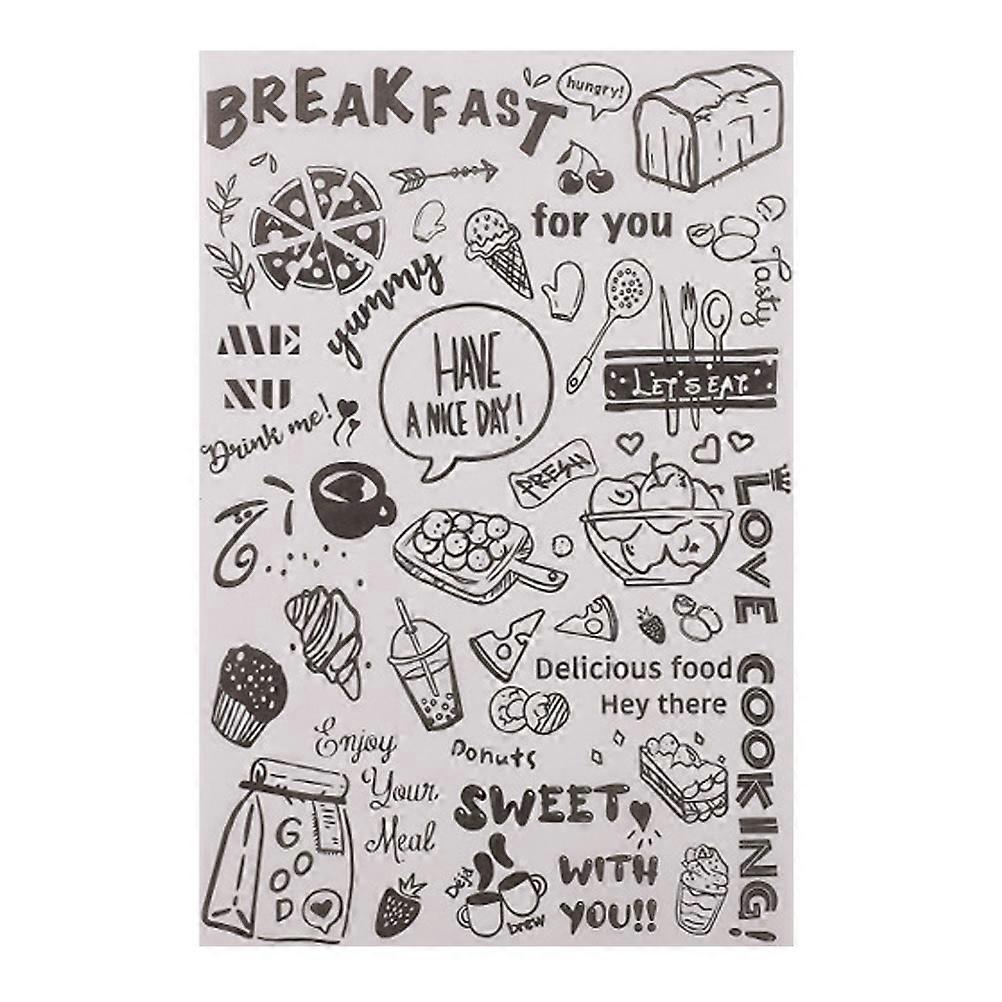 BREAKFAST
hungry!
for you
Tasty
yummy
ME
NU
HAVE
A NICE DAY!
LET'S EAT.
Drink me!
FRESH
LOVE COOKING!
Delicious food
Hey there
Donuts
Enjoy
Your
Meal
SWEET
WITH
YOU!!
GOOD
Deja
brew